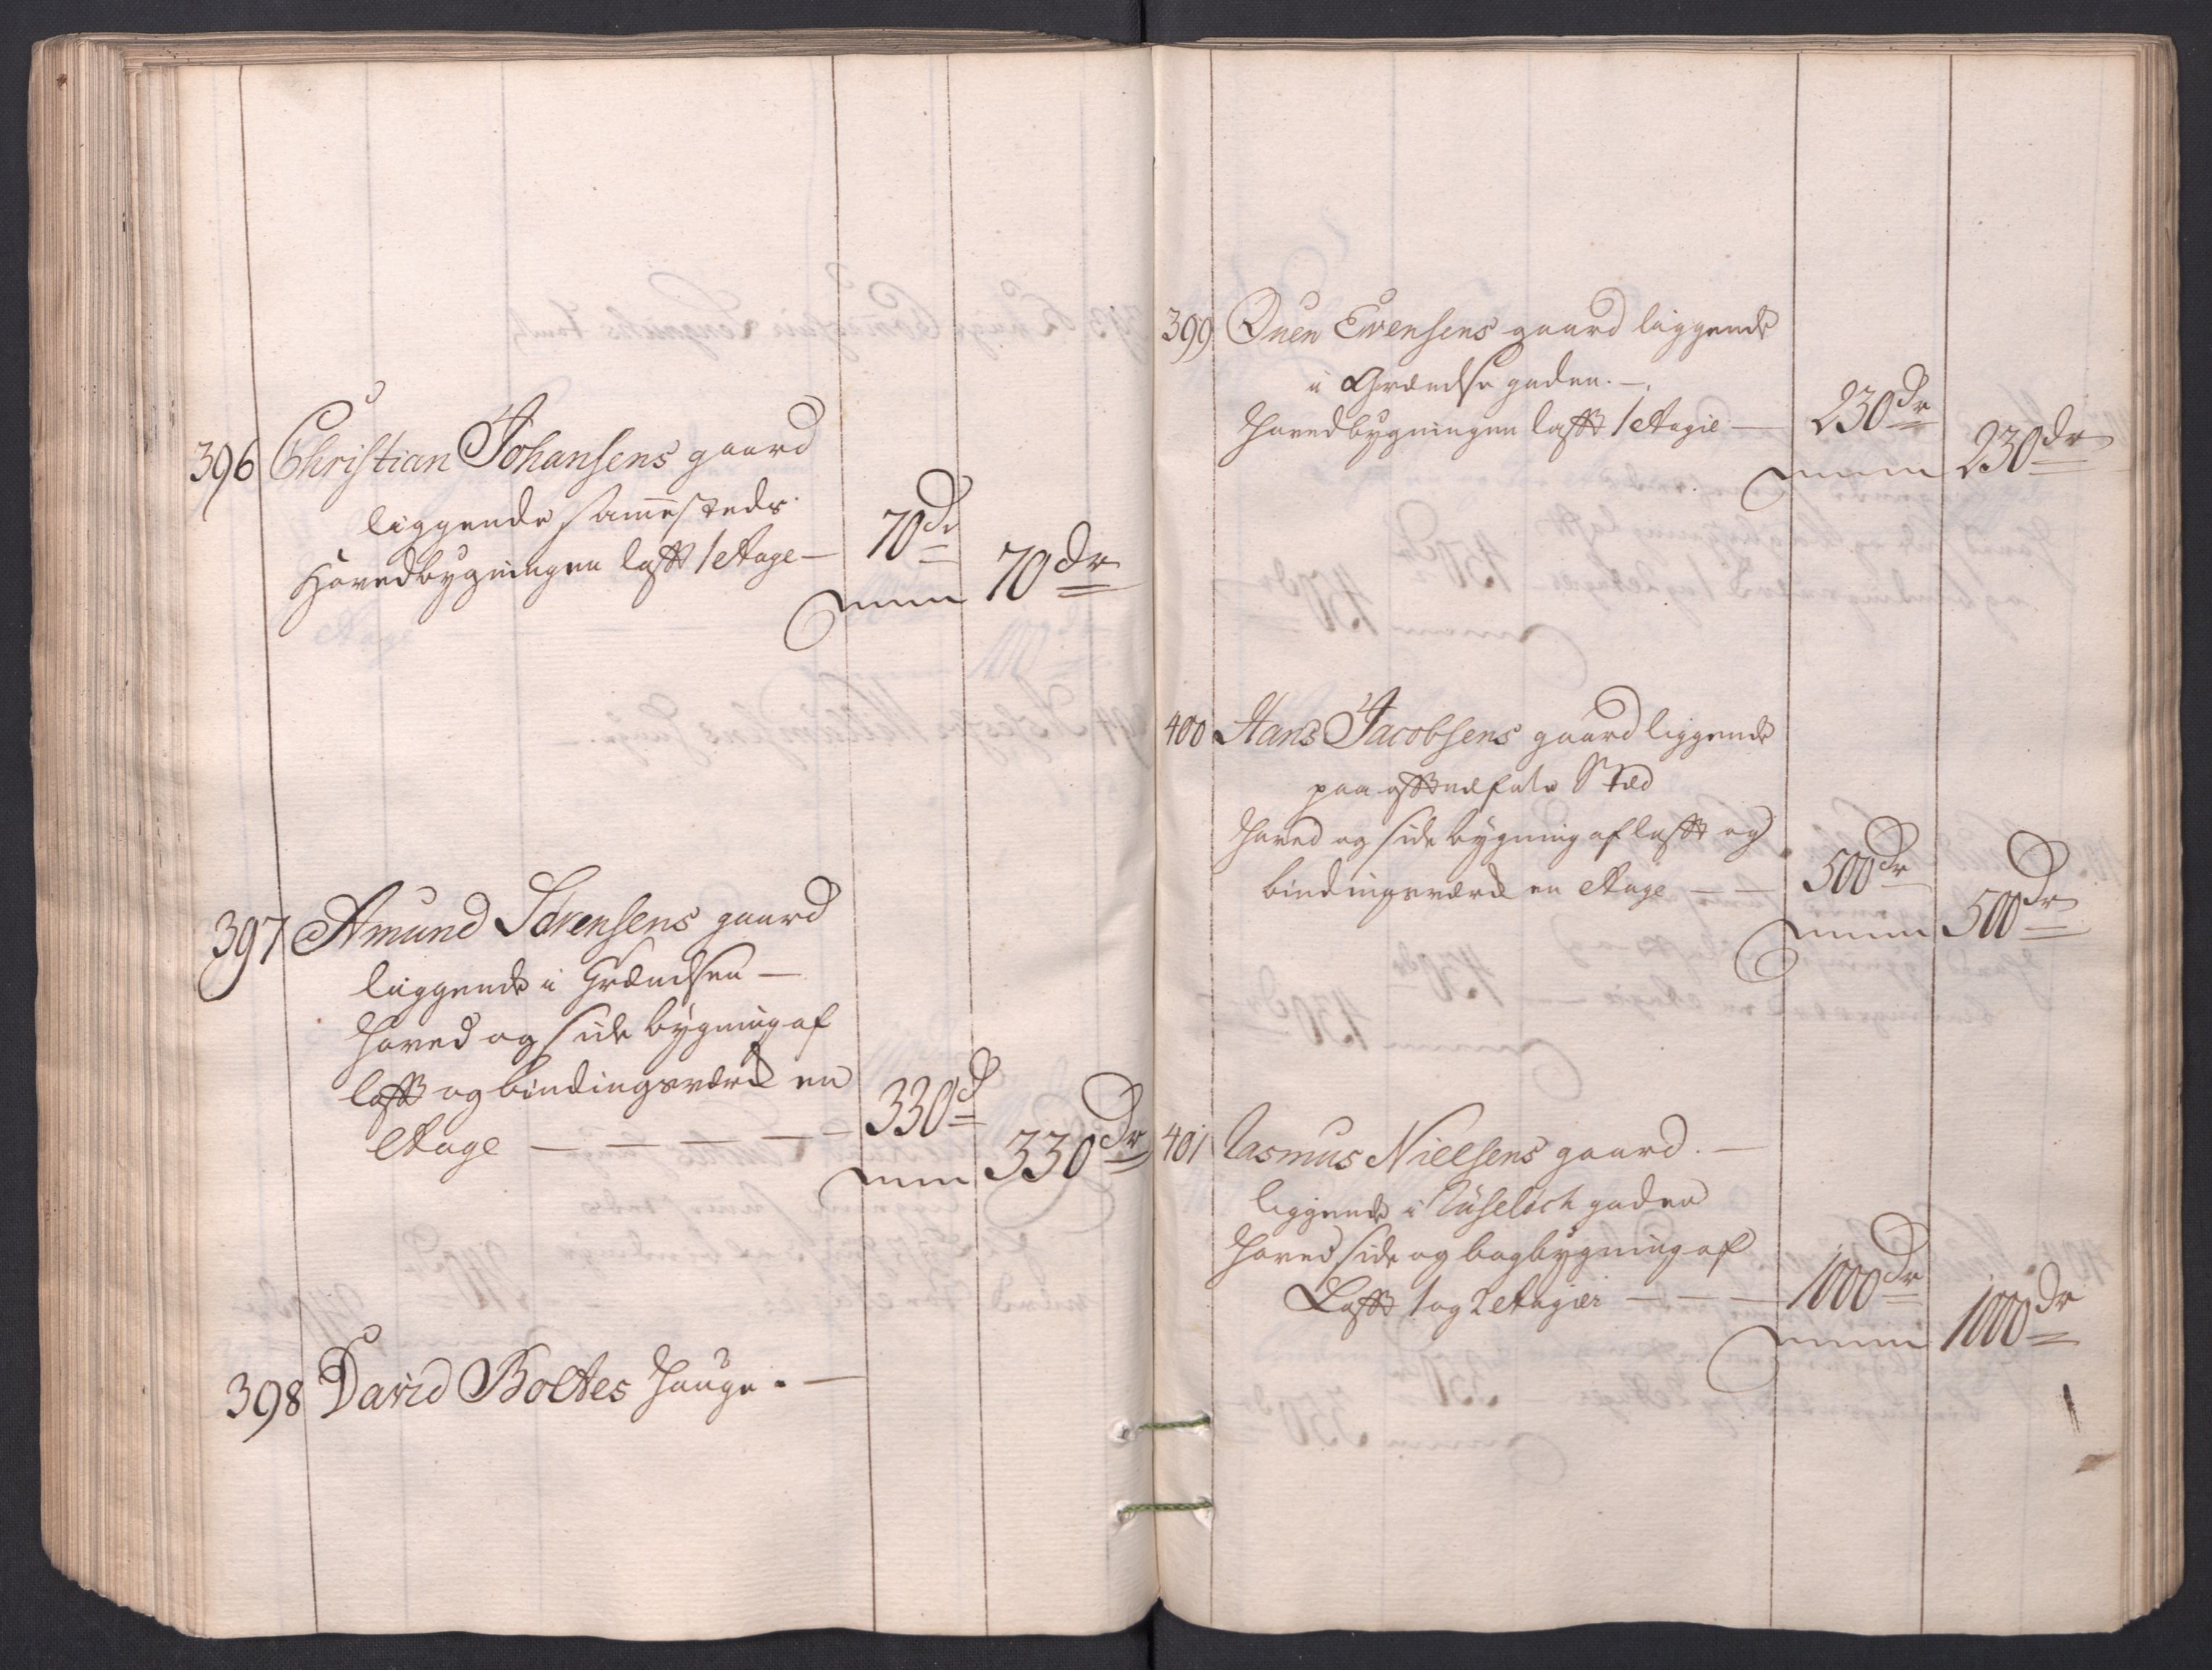 396 Christian Johansens gaard
liggende sammesteds.
Hovedbygningen lafft 1 Etage — 70 dr
70 dr
397 Amund Sørensens gaard
liggende i Grændsen —
Hoved og side bygning af
lafft og bindingsværk en
Etage — — — — — 330 d
330 dr
398 David Boltes Hauge. —
399 Ouen Evensens gaard liggende
i Grændse gaden. —
Hovedbygningen lafft 1 Etagie — 230 dr
230 dr
400 Hans Jacobsens gaard liggende
paa Stæd
Hoved og side bygning af lafft og
bindingsværk en Etage — — 500 dr
500 dr
401 Rasmus Nielsens gaard. —
liggende i Rüseløch gaden
Hoved side og bagbygning af
Lafft 1 og 2 Etagier — — — 1000 dr
1000 dr